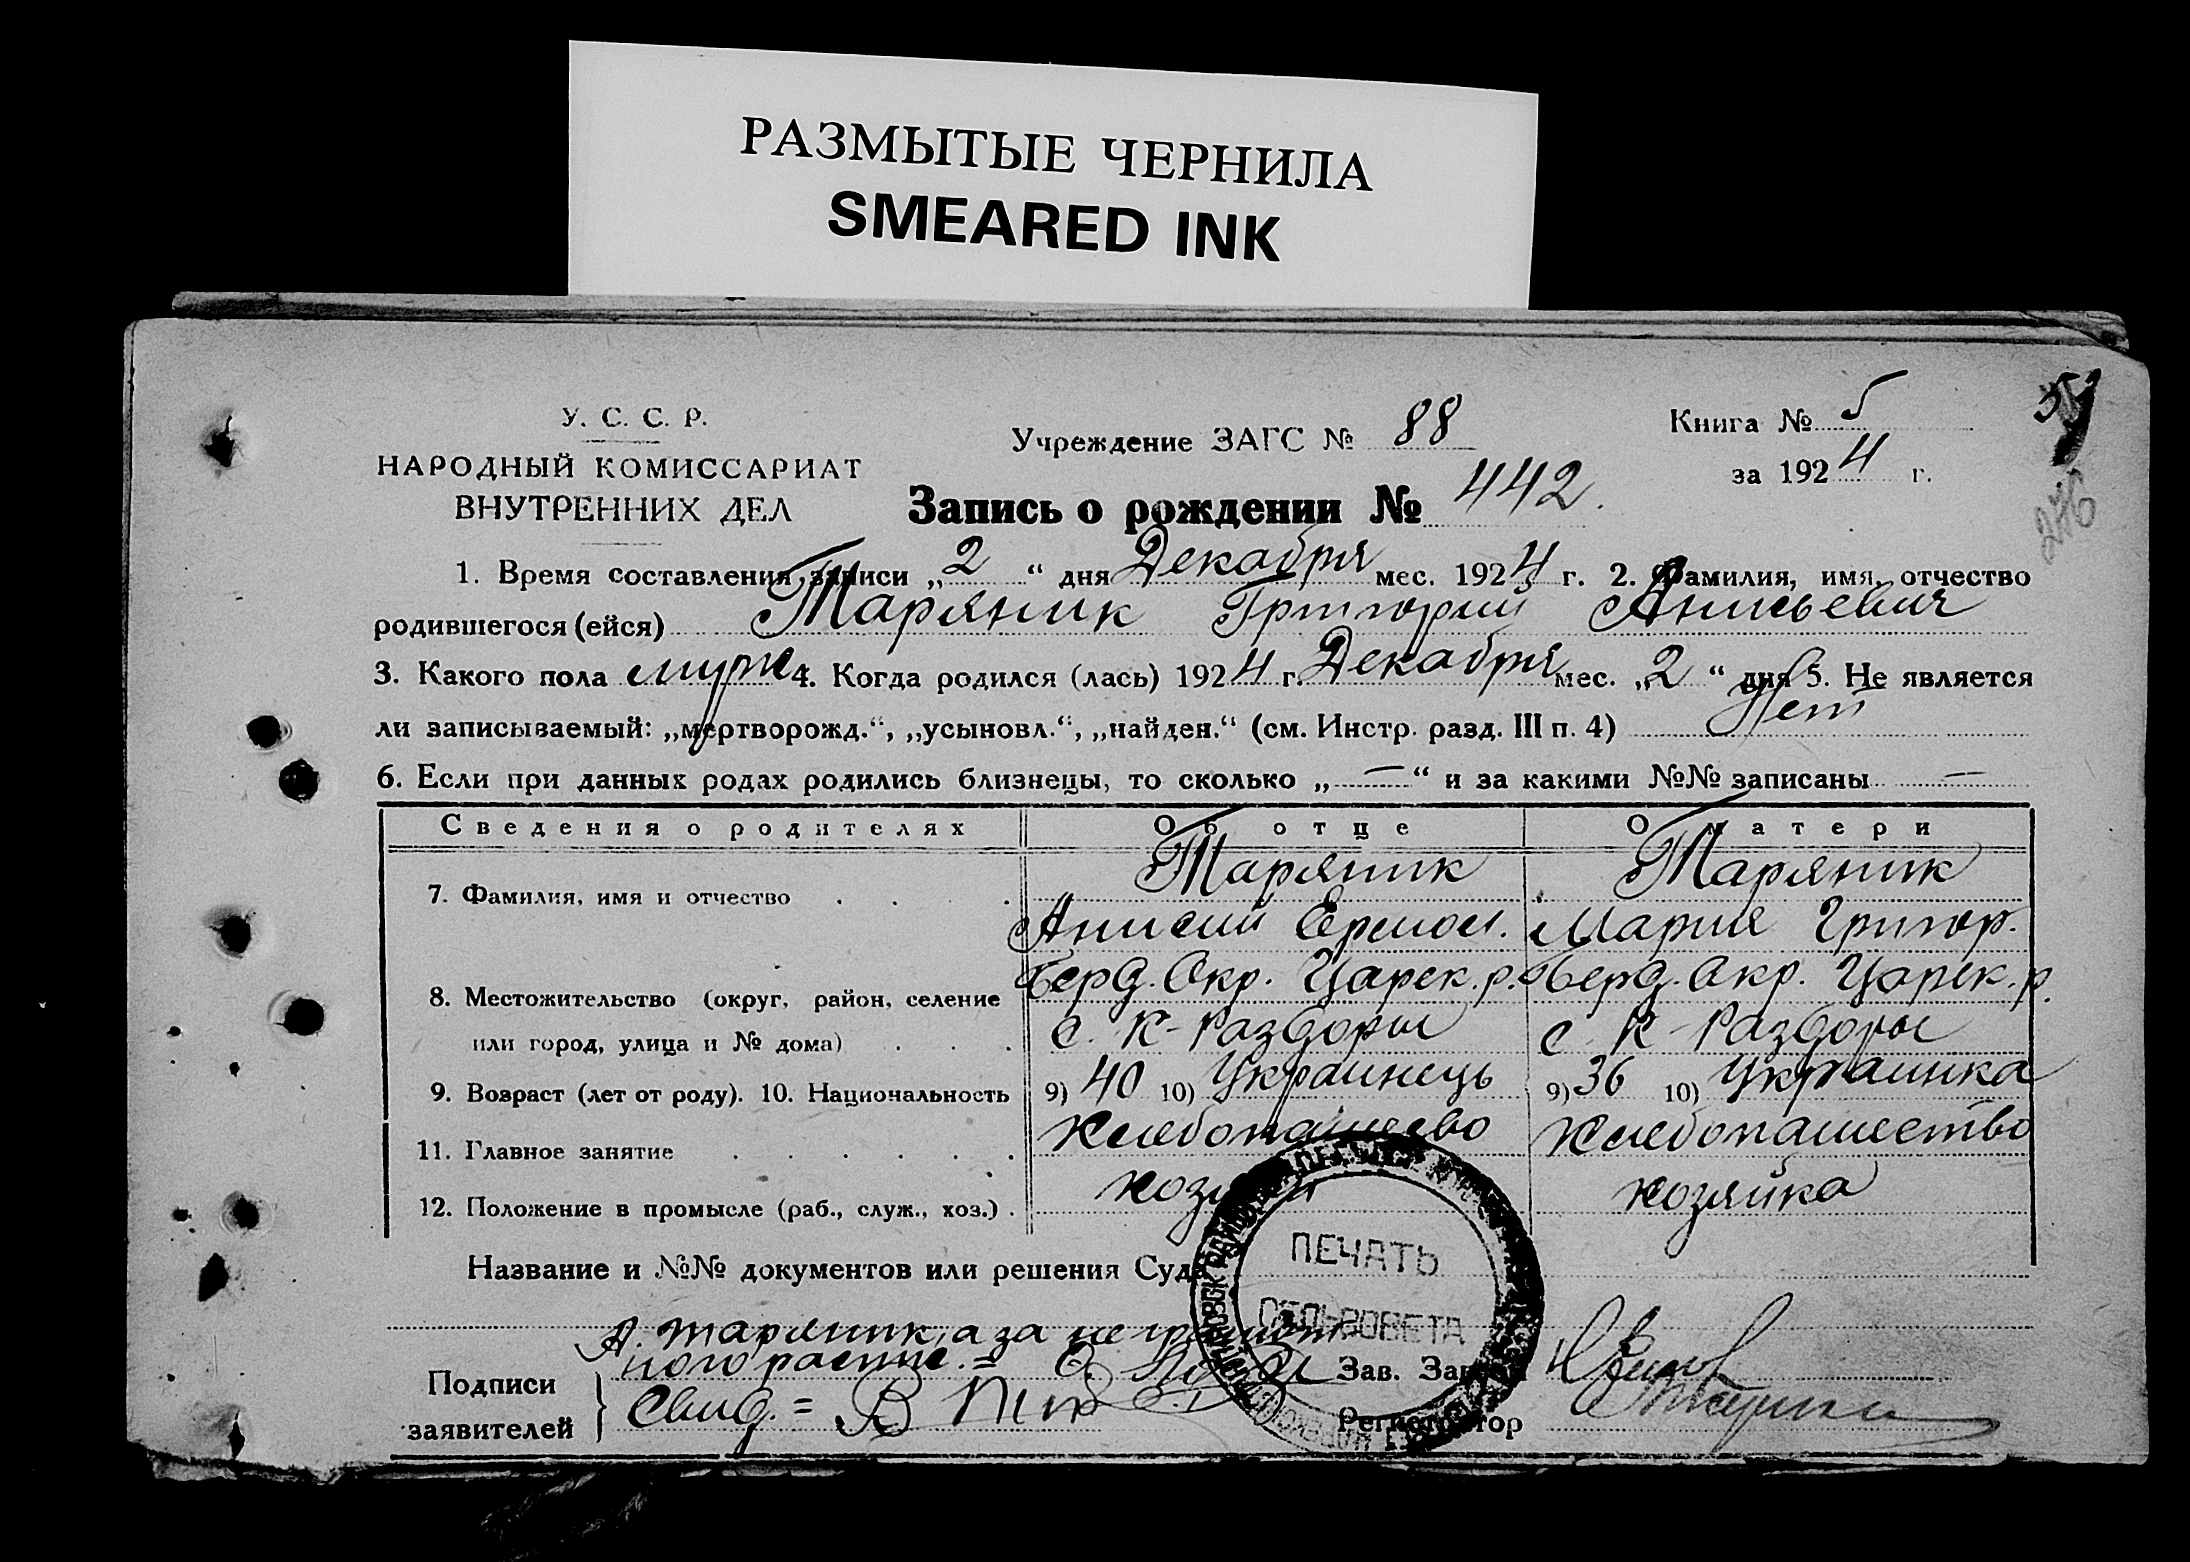 РАЗМЫТЫЕ ЧЕРНИЛА
SMEARED INK
У. С. С. Р.
НАРОДНЫЙ КОМИССАРИАТ
ВНУТРЕННИХ ДЕЛ
Учреждение ЗАГС № 88
Книга № 5
за 1924 г.
Запись о рождении № 442.
1. Время составления записи „2“ дня Декабря мес. 1924 г. 2. Фамилия, имя, отчество
родившегося (ейся) Таряник Григорий Анисьевич
3. Какого пола муж 4. Когда родился (лась) 1924 г. Декабря мес. „2“ дня 5. Не является
ли записываемый: „мертворожд.“, „усыновл.“, „найден.“ (см. Инстр. разд. III п. 4) Нет
6. Если при данных родах родились близнецы, то сколько „—“ и за какими №№ записаны —
Сведения о родителях Об отце О матери
Таряник Таряник
7. Фамилия, имя и отчество
Анисий Ермол. Мария Григор.
Берд. Окр. Царек. р. Берд. Окр. Царек. р.
8. Местожительство (округ, район, селение
или город, улица и № дома) с. К-Раздоры с. К-Раздоры
9. Возраст (лет от роду). 10. Национальность 9) 40 10) Украинець 9) 36 10) Украинка
11. Главное занятие Хлебопашево Хлебопашество
12. Положение в промысле (раб., служ., хоз.) хозяин хозяйка
Название и №№ документов или решения Суда
А. Таряник, а за неграмот
ного распис. =
Подписи
заявителей
Свид. =
Зав. Загсом
Регистратор
ПЕЧАТЬ
СЕЛЬСОВЕТА